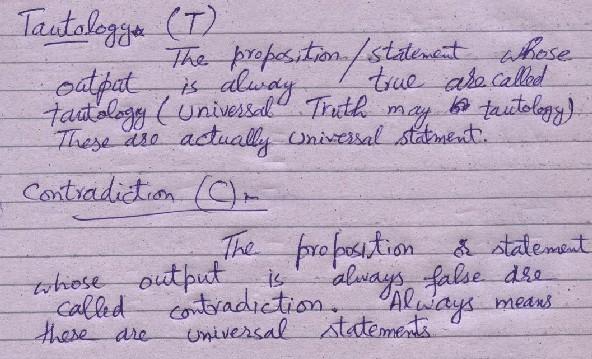 Tautology (T)
The proposition/statement whose
output is alway true are called
tautology (universal Truth may tautology)
These are actually universal statment.
Contradiction (C)-
The proposition & statement
whose output is always false are
called contradiction. Always means
these are universal statements